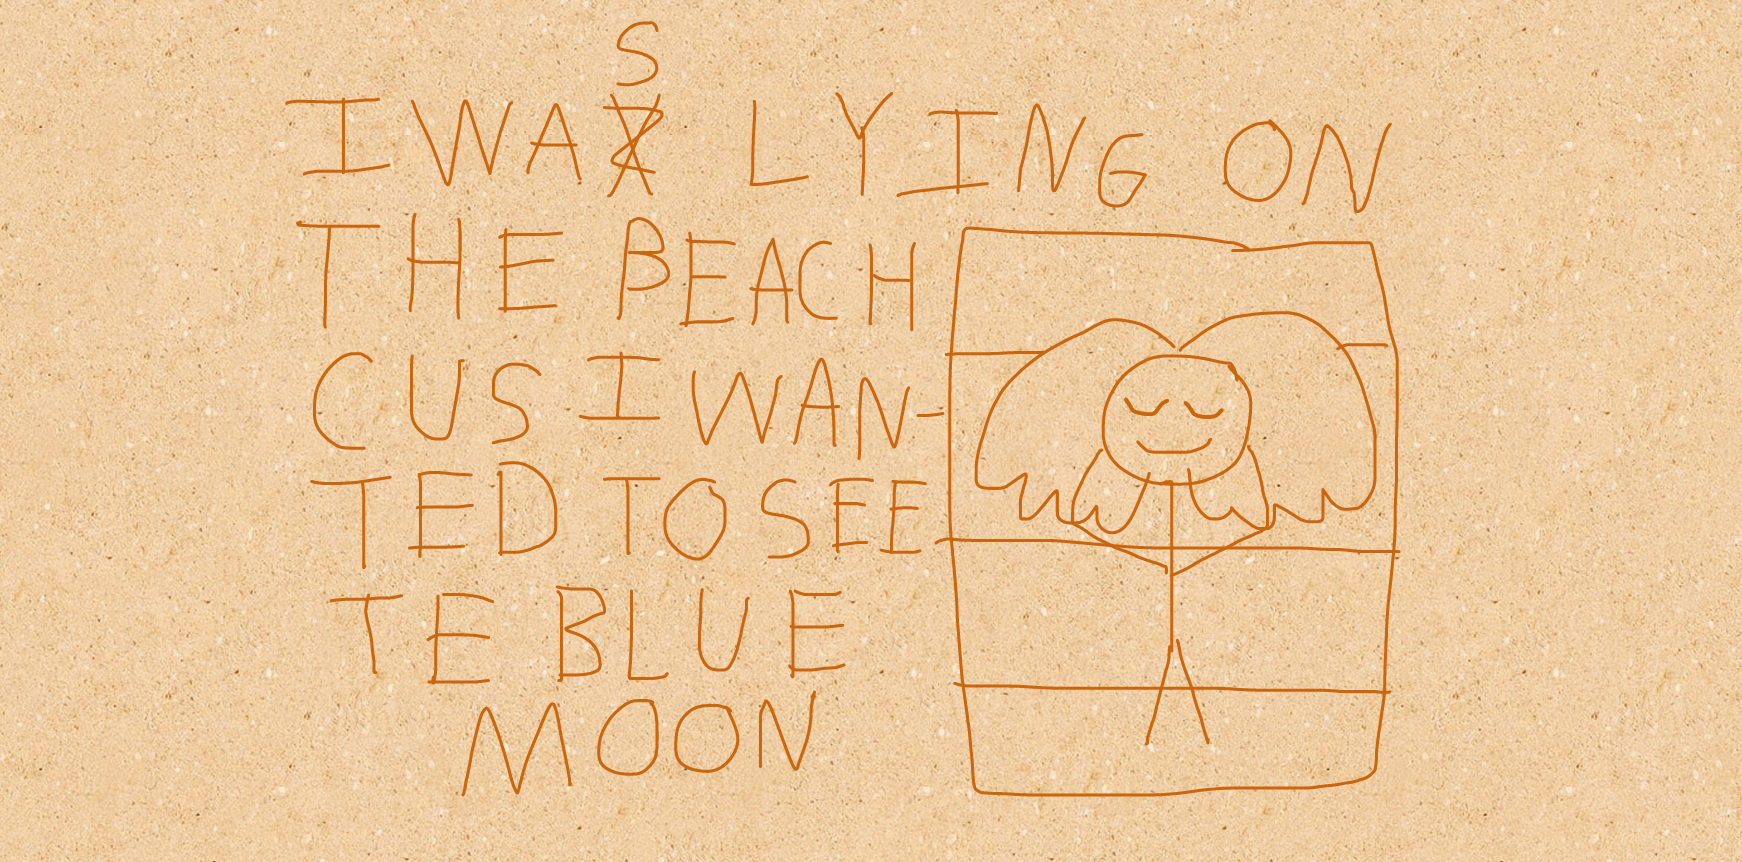 I WAS LYING ON
THE BEACH
CUS I WAN-
TED TO SEE
TE BLUE
MOON